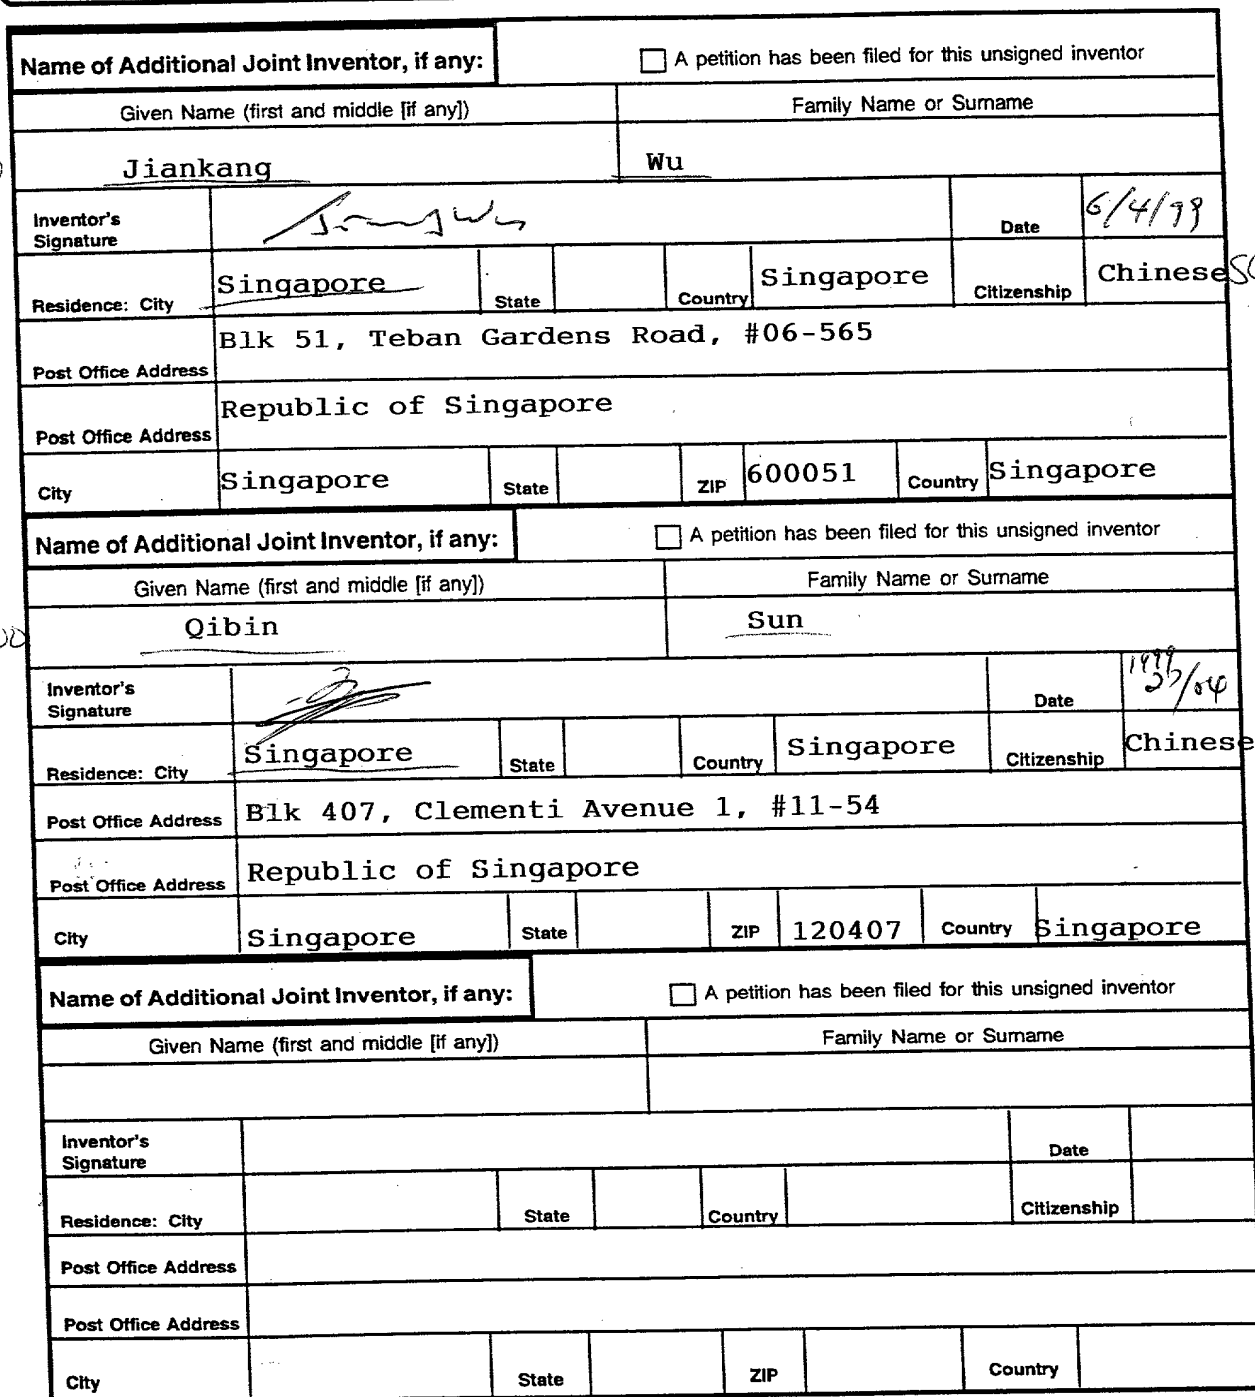 Name of Additional Joint Inventor, if any: A petition has been filed for this unsigned inventor
Given Name (first and middle [if any]) Family Name or Surname
Jiankang Wu
Inventor's Signature Date 6/4/99
Residence: City Singapore State Country Singapore Citizenship Chinese
Post Office Address Blk 51, Teban Gardens Road, #06-565
Post Office Address Republic of Singapore
City Singapore State ZIP 600051 Country Singapore
Name of Additional Joint Inventor, if any: A petition has been filed for this unsigned inventor
Given Name (first and middle [if any]) Family Name or Surname
Qibin Sun
Inventor's Signature Date 1999
Residence: City Singapore State Country Singapore Citizenship Chinese
Post Office Address Blk 407, Clementi Avenue 1, #11-54
Post Office Address Republic of Singapore
City Singapore State ZIP 120407 Country Singapore
Name of Additional Joint Inventor, if any: A petition has been filed for this unsigned inventor
Given Name (first and middle [if any]) Family Name or Surname
Inventor's Signature Date
Residence: City State Country Citizenship
Post Office Address
Post Office Address
City State ZIP Country